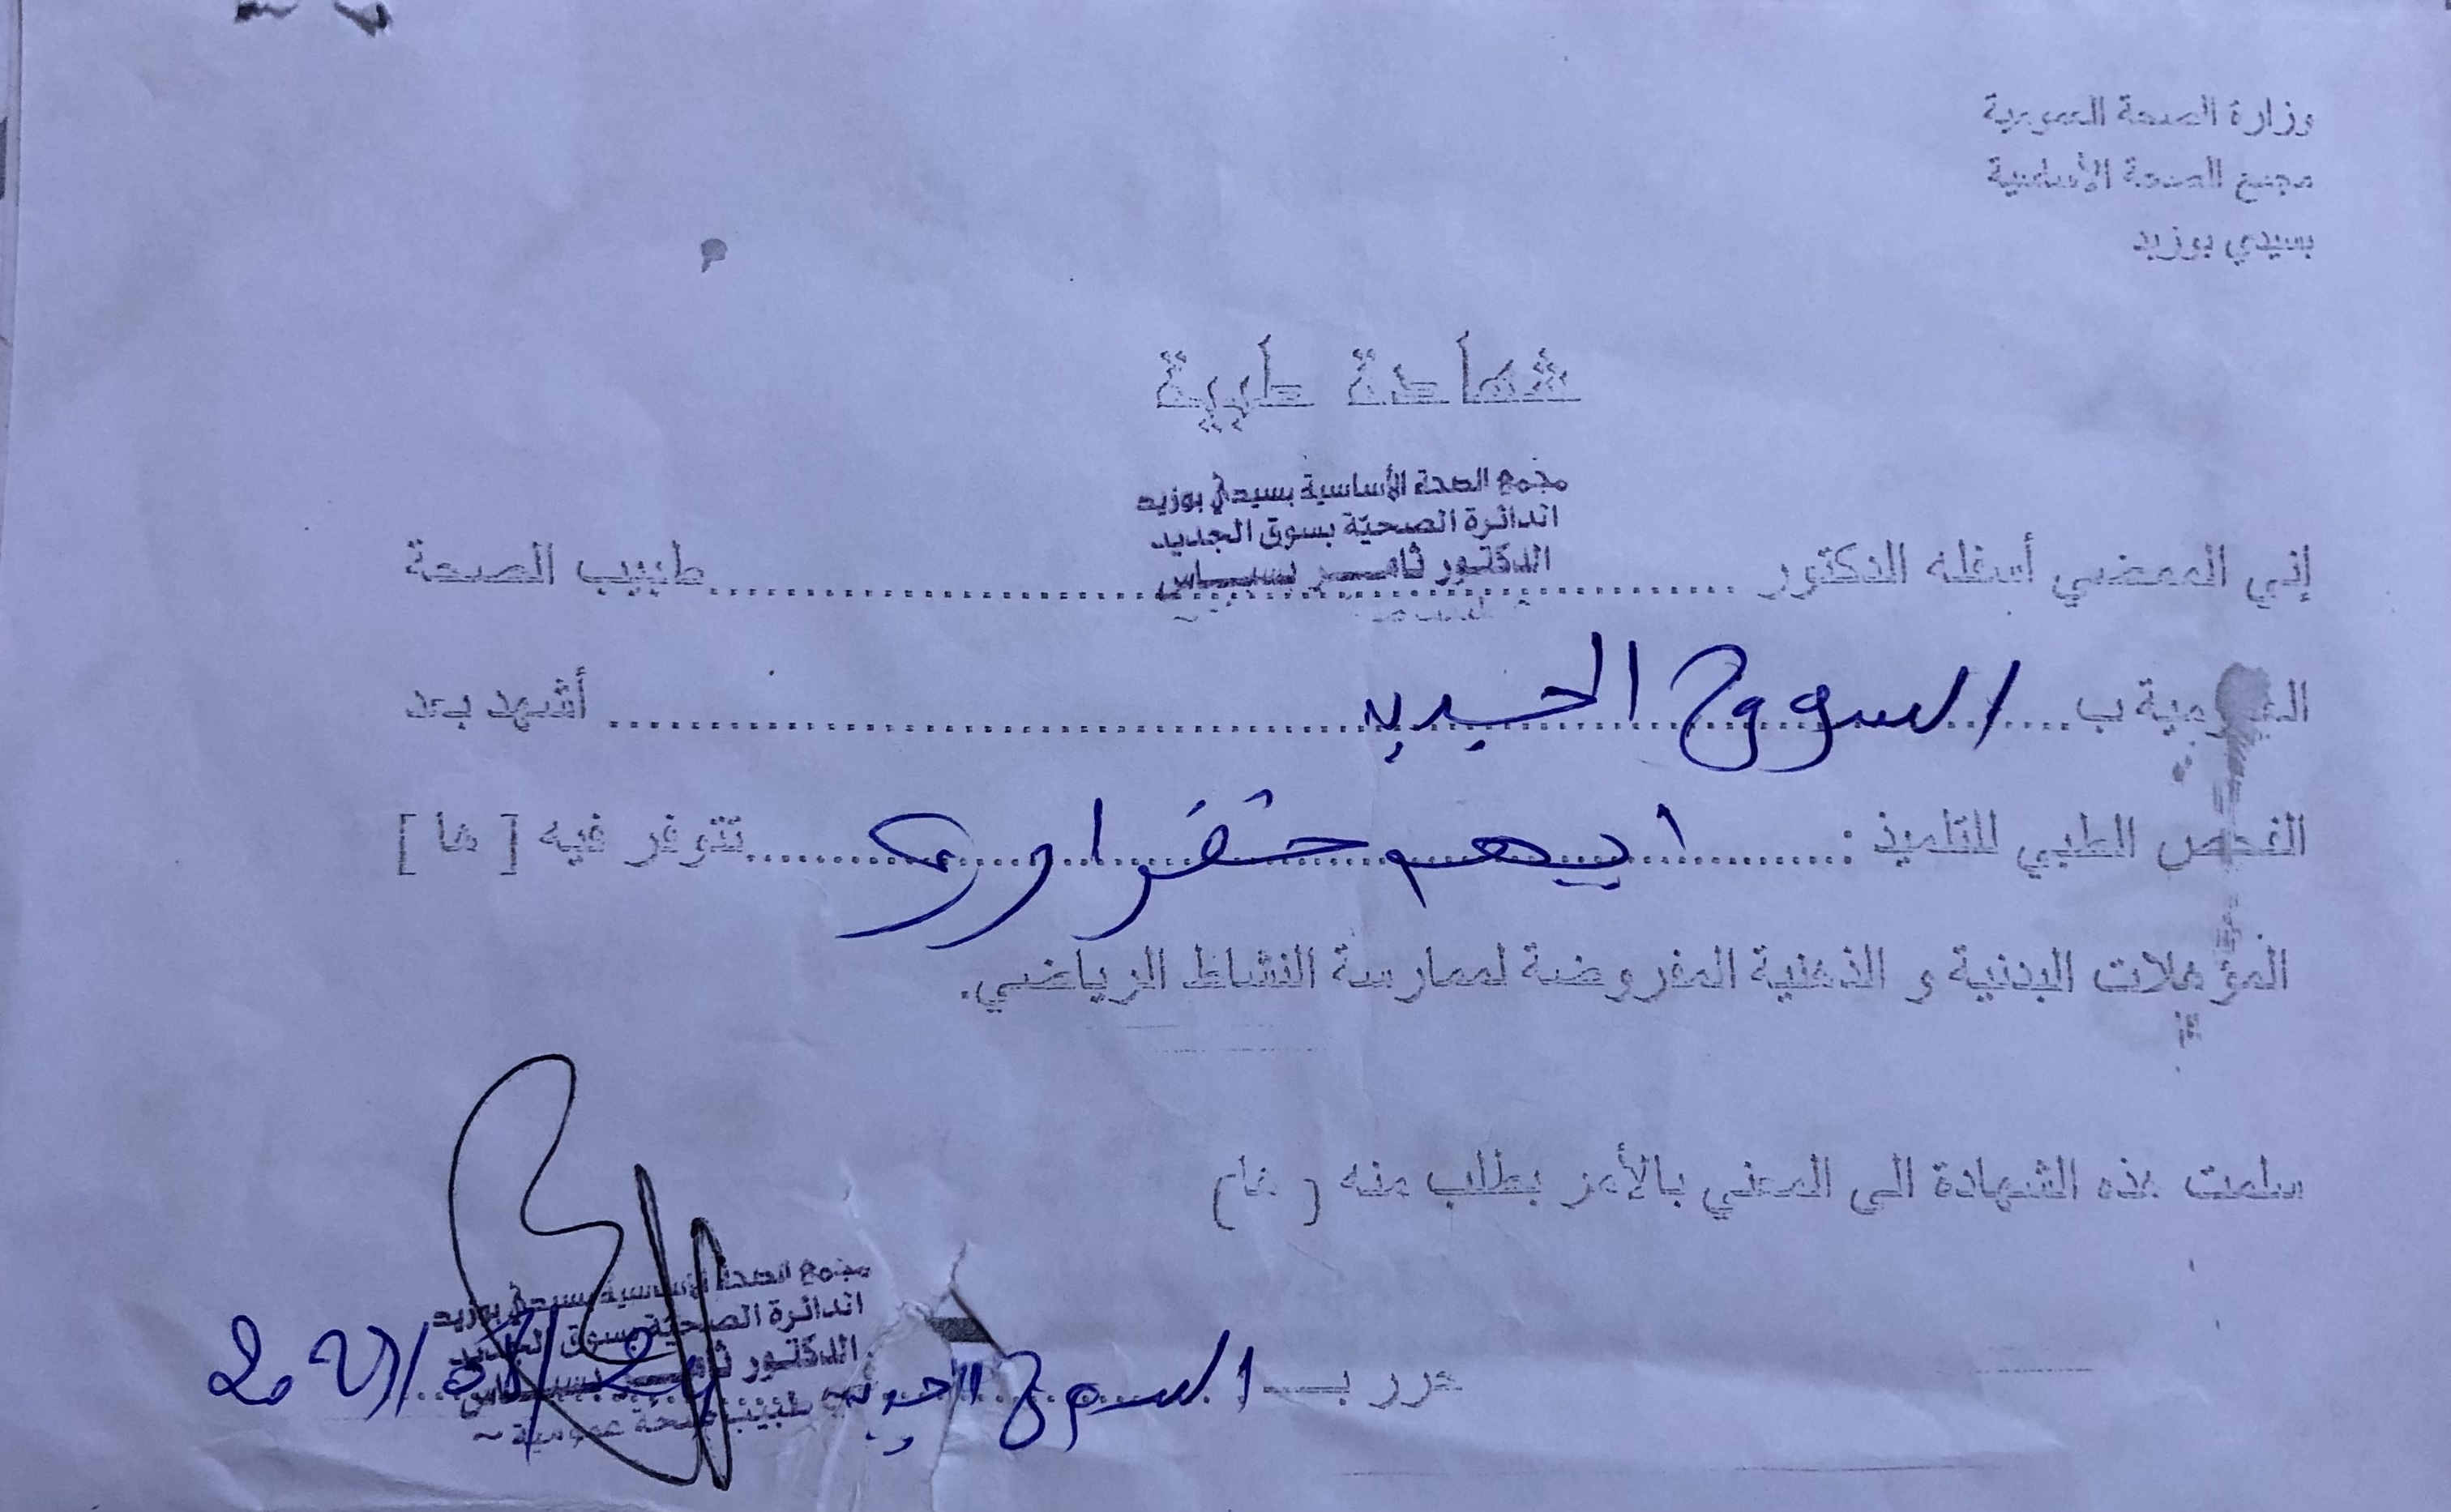 وزارة الصحة العمومية
مجمع الصحة الأساسية
بسيدي بوزيد
شهادة طبية
مجمع الصحة الأساسية بسيدي بوزيد
الدائرة الصحيّة بسوق الجديد
الدكتور ثامر بسباس
إني الممضي أسفله الدكتور طبيب الصحة
العمومية ب السوق الجديد أشهد بعد
الفحص الطبي للتلميذ : ايهم تتوفر فيه [ ها ]
المؤهلات البدنية و الذهنية المفروضة لممارسة النشاط الرياضي.
سلمت هذه الشهادة الى المعني بالأمر بطلب منه ( ها)
مجمع الصحة الأساسية بسيدي بوزيد
الدائرة الصحيّة بسوق الجديد
الدكتور ثامر بسباس
طبيب صحة عمومية
حرر بـ السوق الجديد